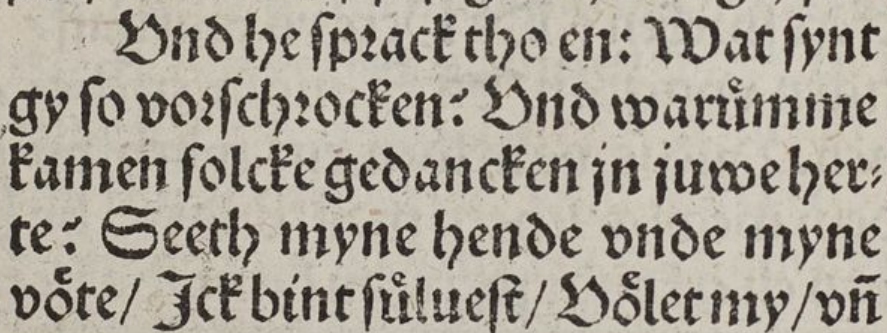 Vnd he sprack tho en: Wat synt
gy so vorschrocken? Vnd waruͤmme
kamen solcke gedancken jn juwe her⸗
te? Seeth myne hende vnde myne
voͤte/ Jck bint suͤluest/ Voͤlet my/ vñ